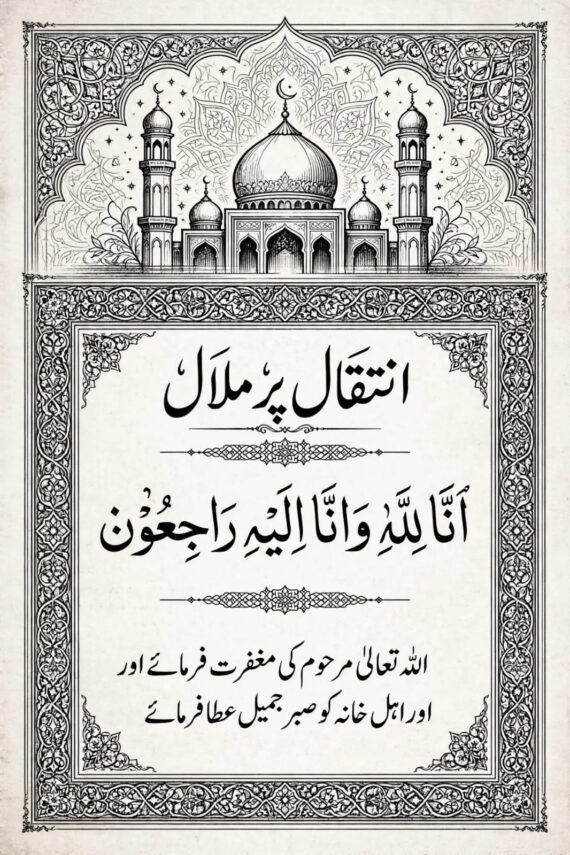 انتقال پر ملال
اَنَّا لِلَّهِ وَانَّا اِلَیْهِ رَاجِعُوْن
اللہ تعالیٰ مرحوم کی مغفرت فرمائے اور
اور اہل خانہ کو صبر جمیل عطا فرمائے